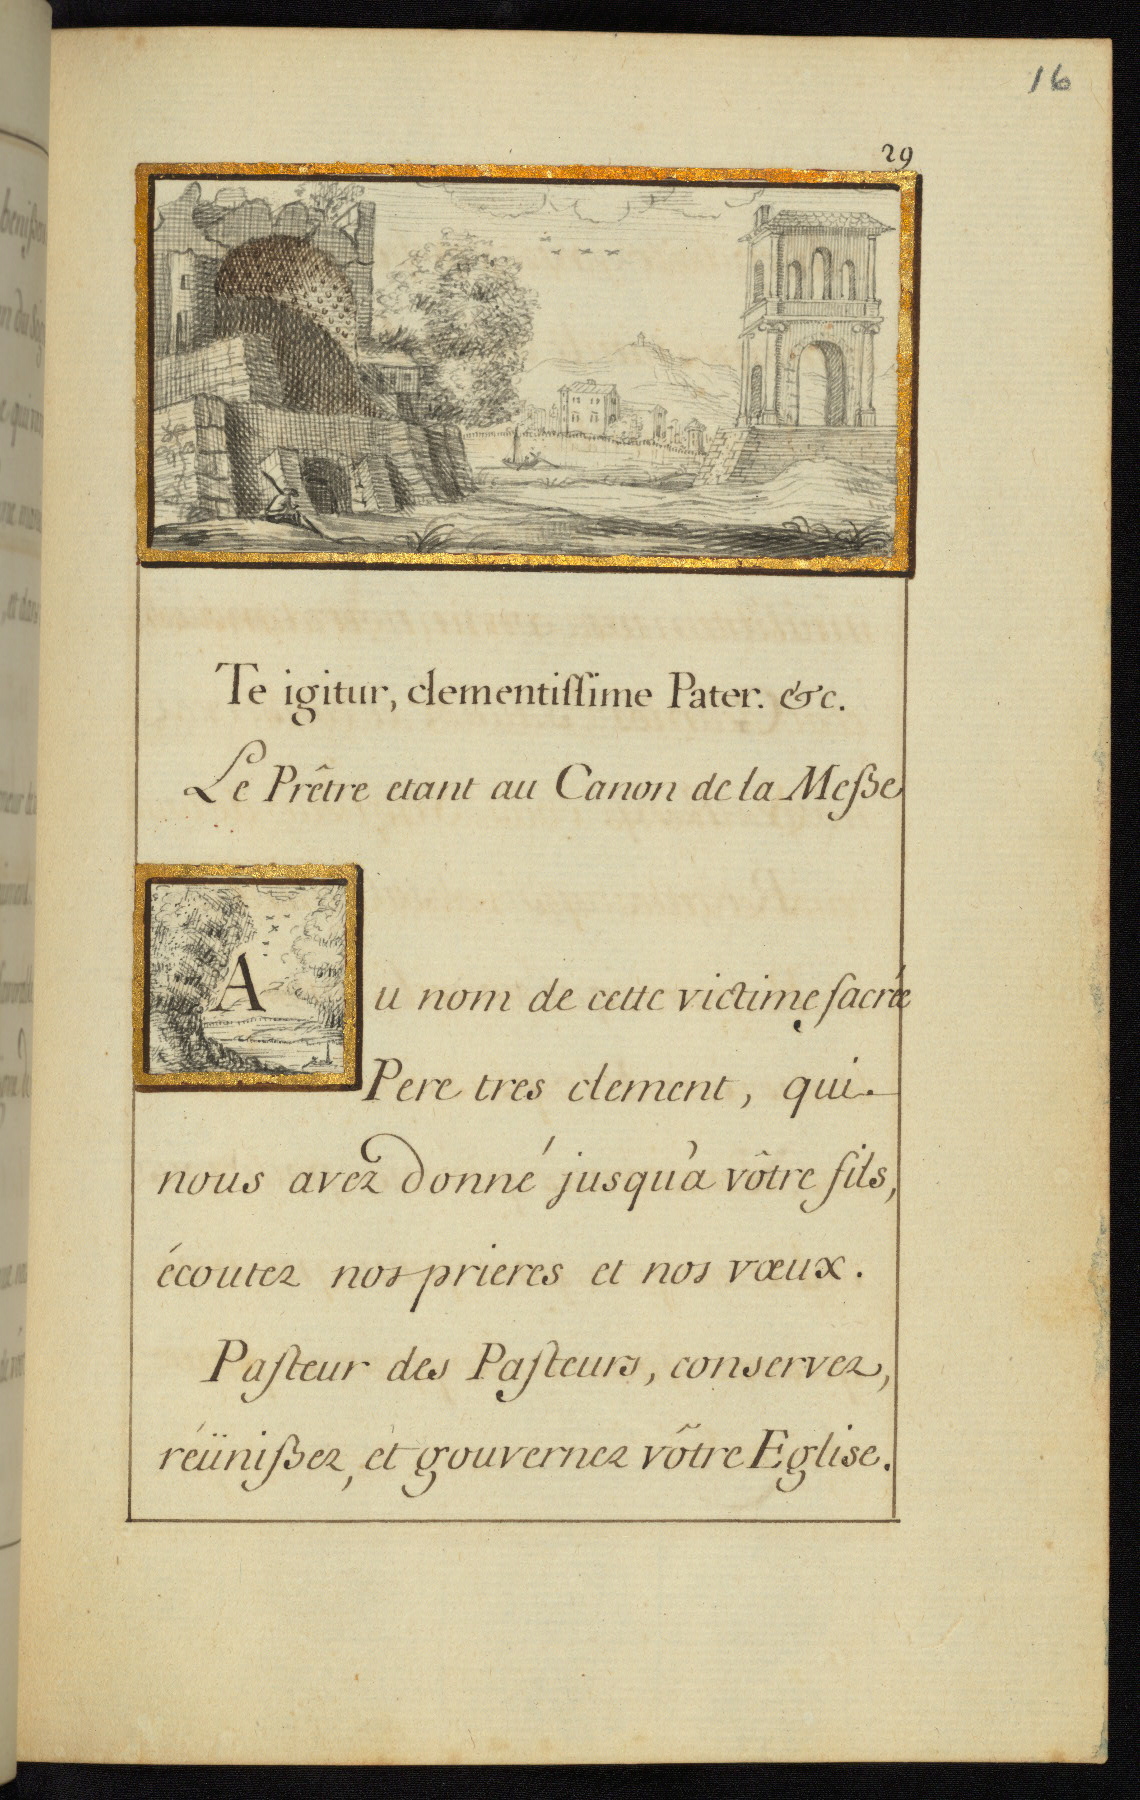 16
29
Te igitur, clementiſſime Pater. &c.
Le Prêtre etant au Canon de la Meſse
Au nom de cette victime ſacrée
Pere tres clement, qui
nous avez donné jusqu'à vôtre fils,
écoutez nos prieres et nos vœux.
Paſteur des Paſteurs, conservez,
réüniſsez, et gouvernez vôtre Eglise.